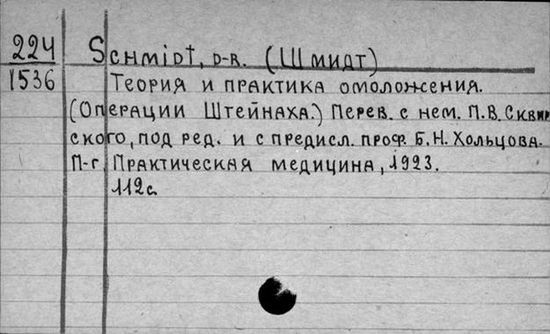 224
1536
Schmidt, D-R. (Шмидт)
Теория и практика омоложения.
(Операции Штейнаха.) Перев. с нем. П.В. Сквир
ского, под ред. и с предисл. проф. Б.Н. Хольцова.
П-г. Практическая медицина, 1923.
112с.